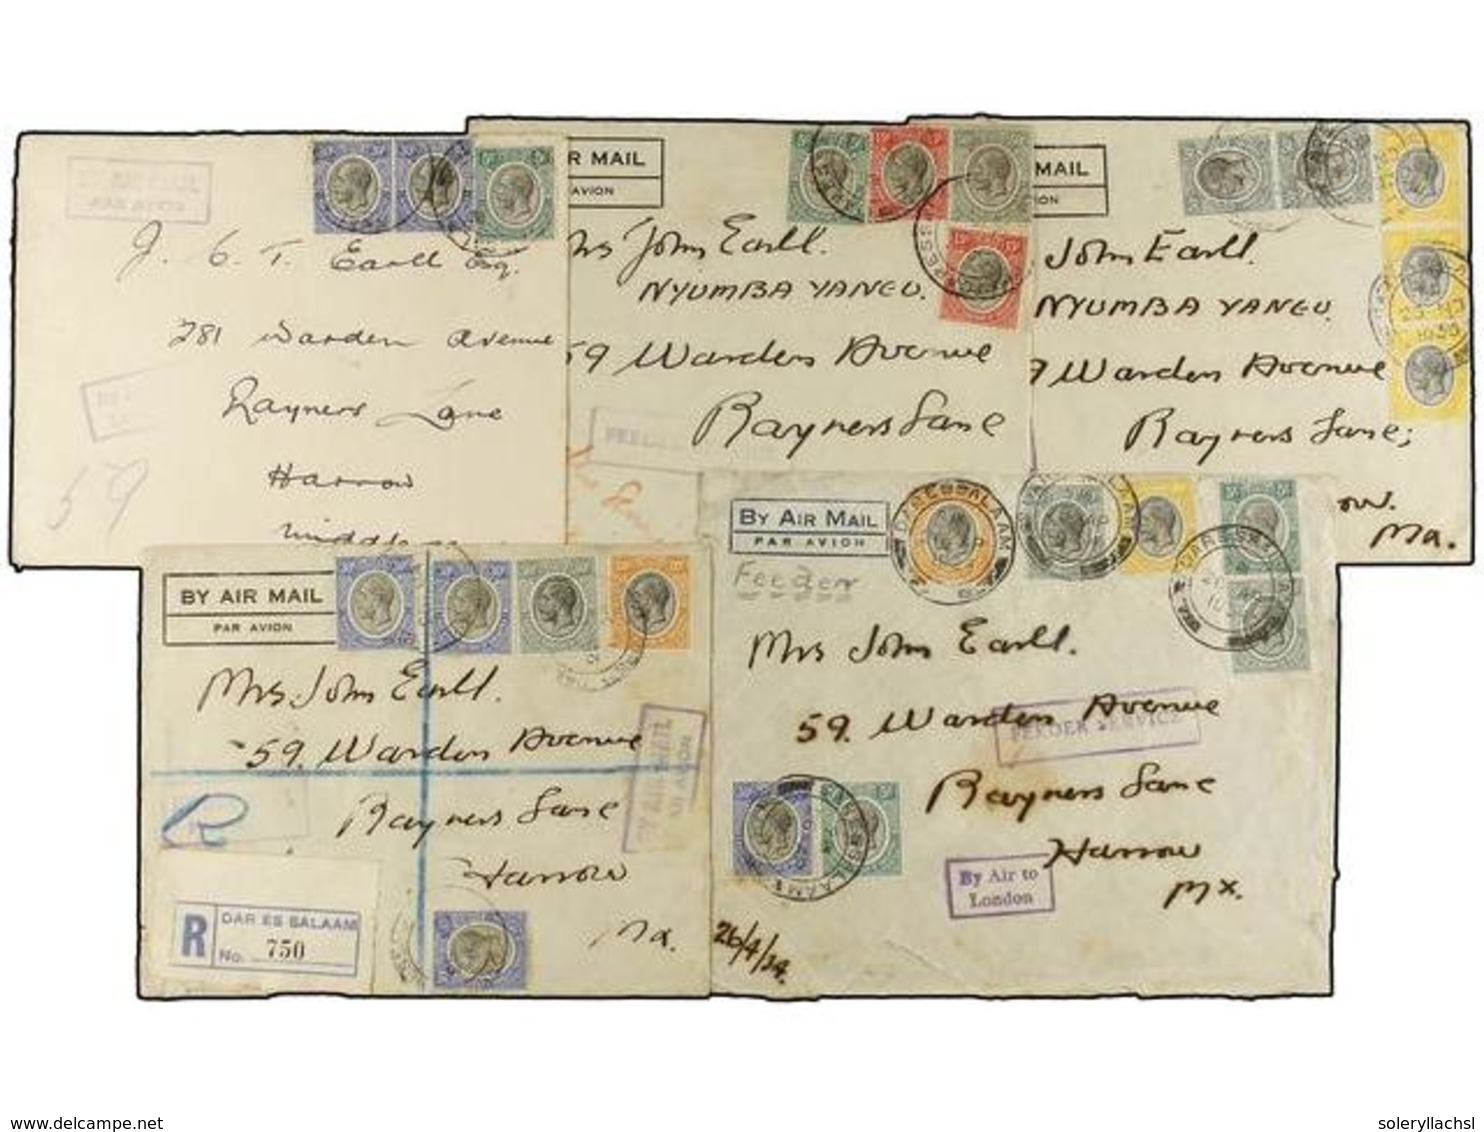 J. C. T. Earll Esq.
281 Warden Avenue
Rayners Lane
Harrow
59
R MAIL
AVION
Mrs John Earll.
NYUMBA YANGU.
59 Warden Avenue
Rayners Lane
FEEDER
MAIL
ION
John Earll.
NYUMBA YANGU.
Warden Avenue
Rayners Lane;
Mx.
BY AIR MAIL
PAR AVION
Mrs John Earll.
59. Warden Avenue
Rayners Lane
Harrow
Mx.
R
BY AIR MAIL
PAR AVION
R
DAR ES SALAAM
No. 750
BY AIR MAIL
PAR AVION
Feeder
DAR ES SALAAM
Mrs John Earll.
59. Warden Avenue
FEEDER SERVICE
Rayners Lane
Harrow
Mx.
By Air to
London
26/4/34.
www.delcampe.net
soleryllachsl